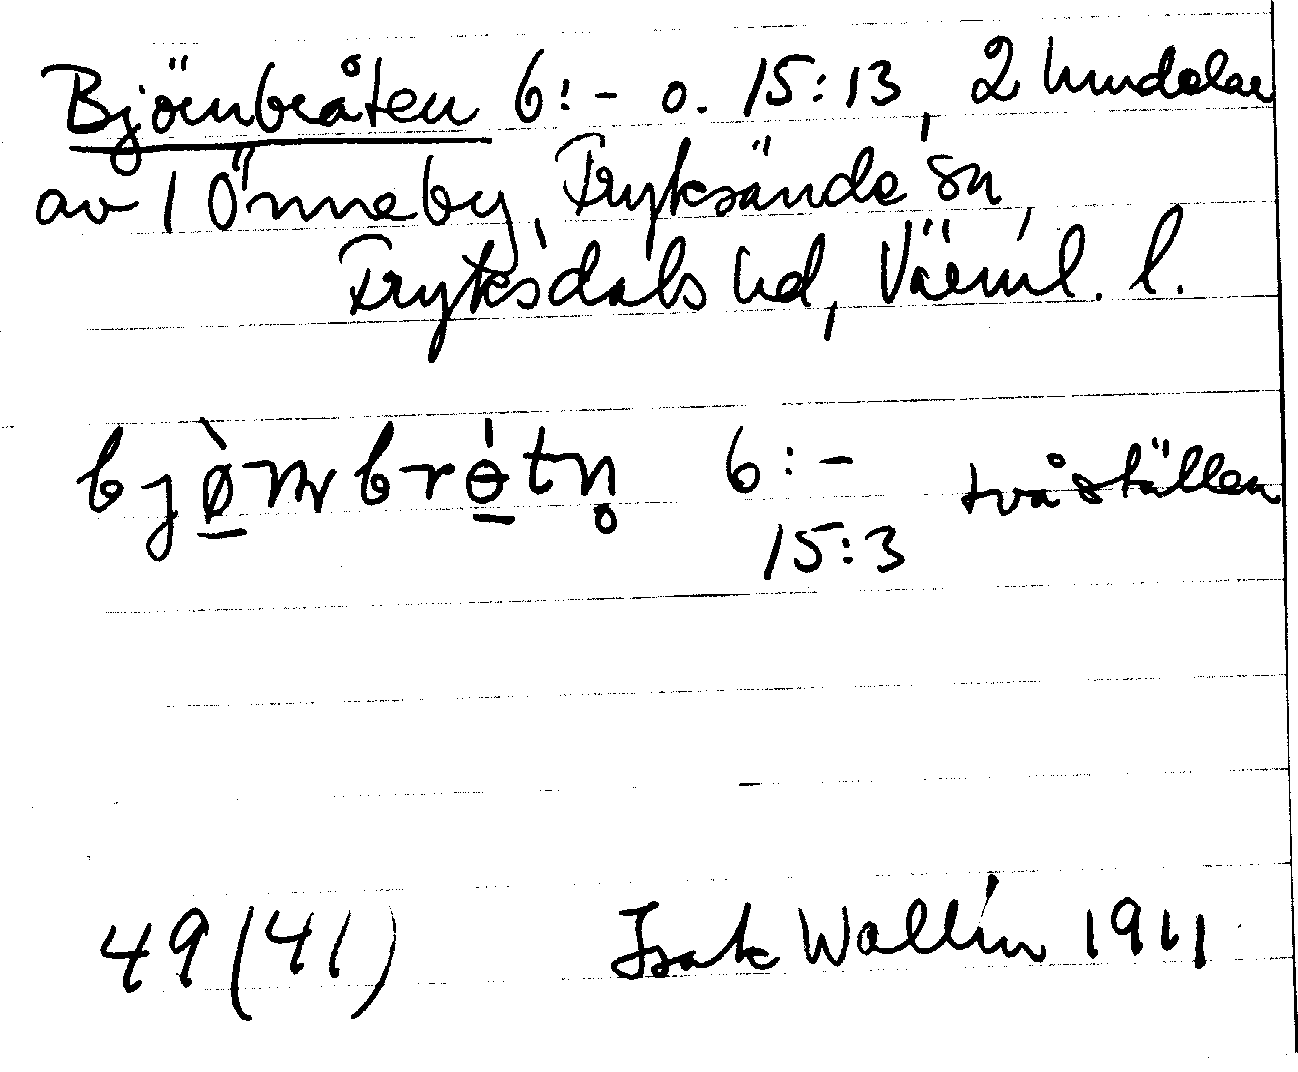 Björnbråten 6:- o. 15:13, 2 hmdelar
av 1 Önneby, Fryksände sn,
Fryksdals hd, Värml. l.
bjø̀mbrɵ́tn̥ 6:- två ställen
15:3
49 (41) Isak Wallin 1911